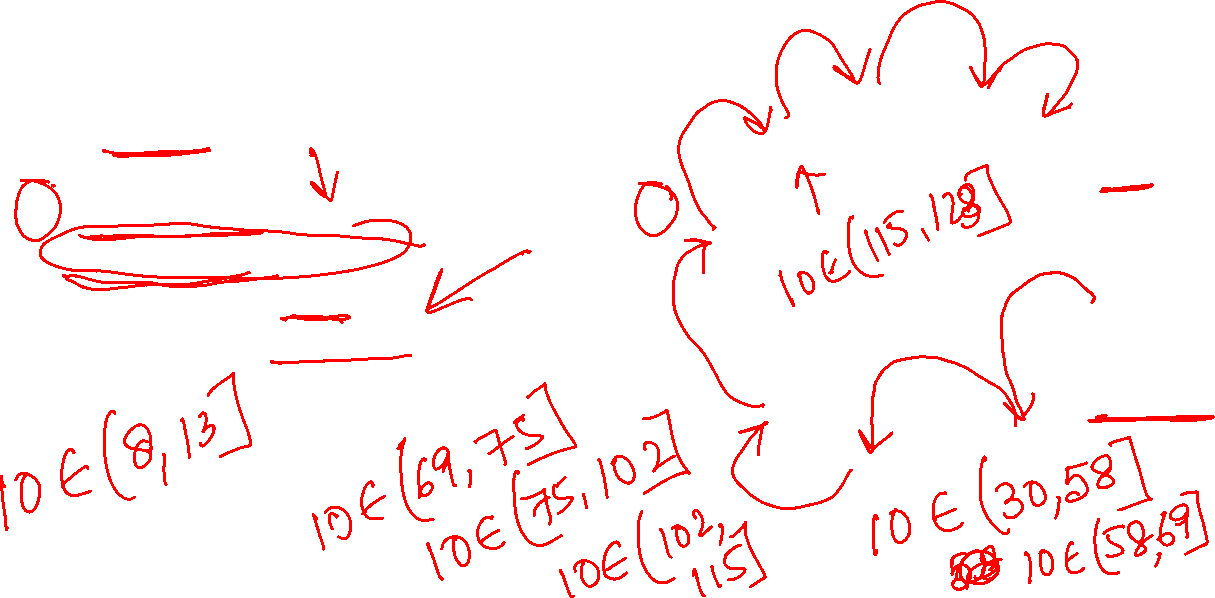 10 ∈ (115, 128]
10 ∈ (8, 13]
10 ∈ (69, 75]
10 ∈ (75, 102]
10 ∈ (102,
115]
10 ∈ (30, 58]
10 ∈ (58, 69]